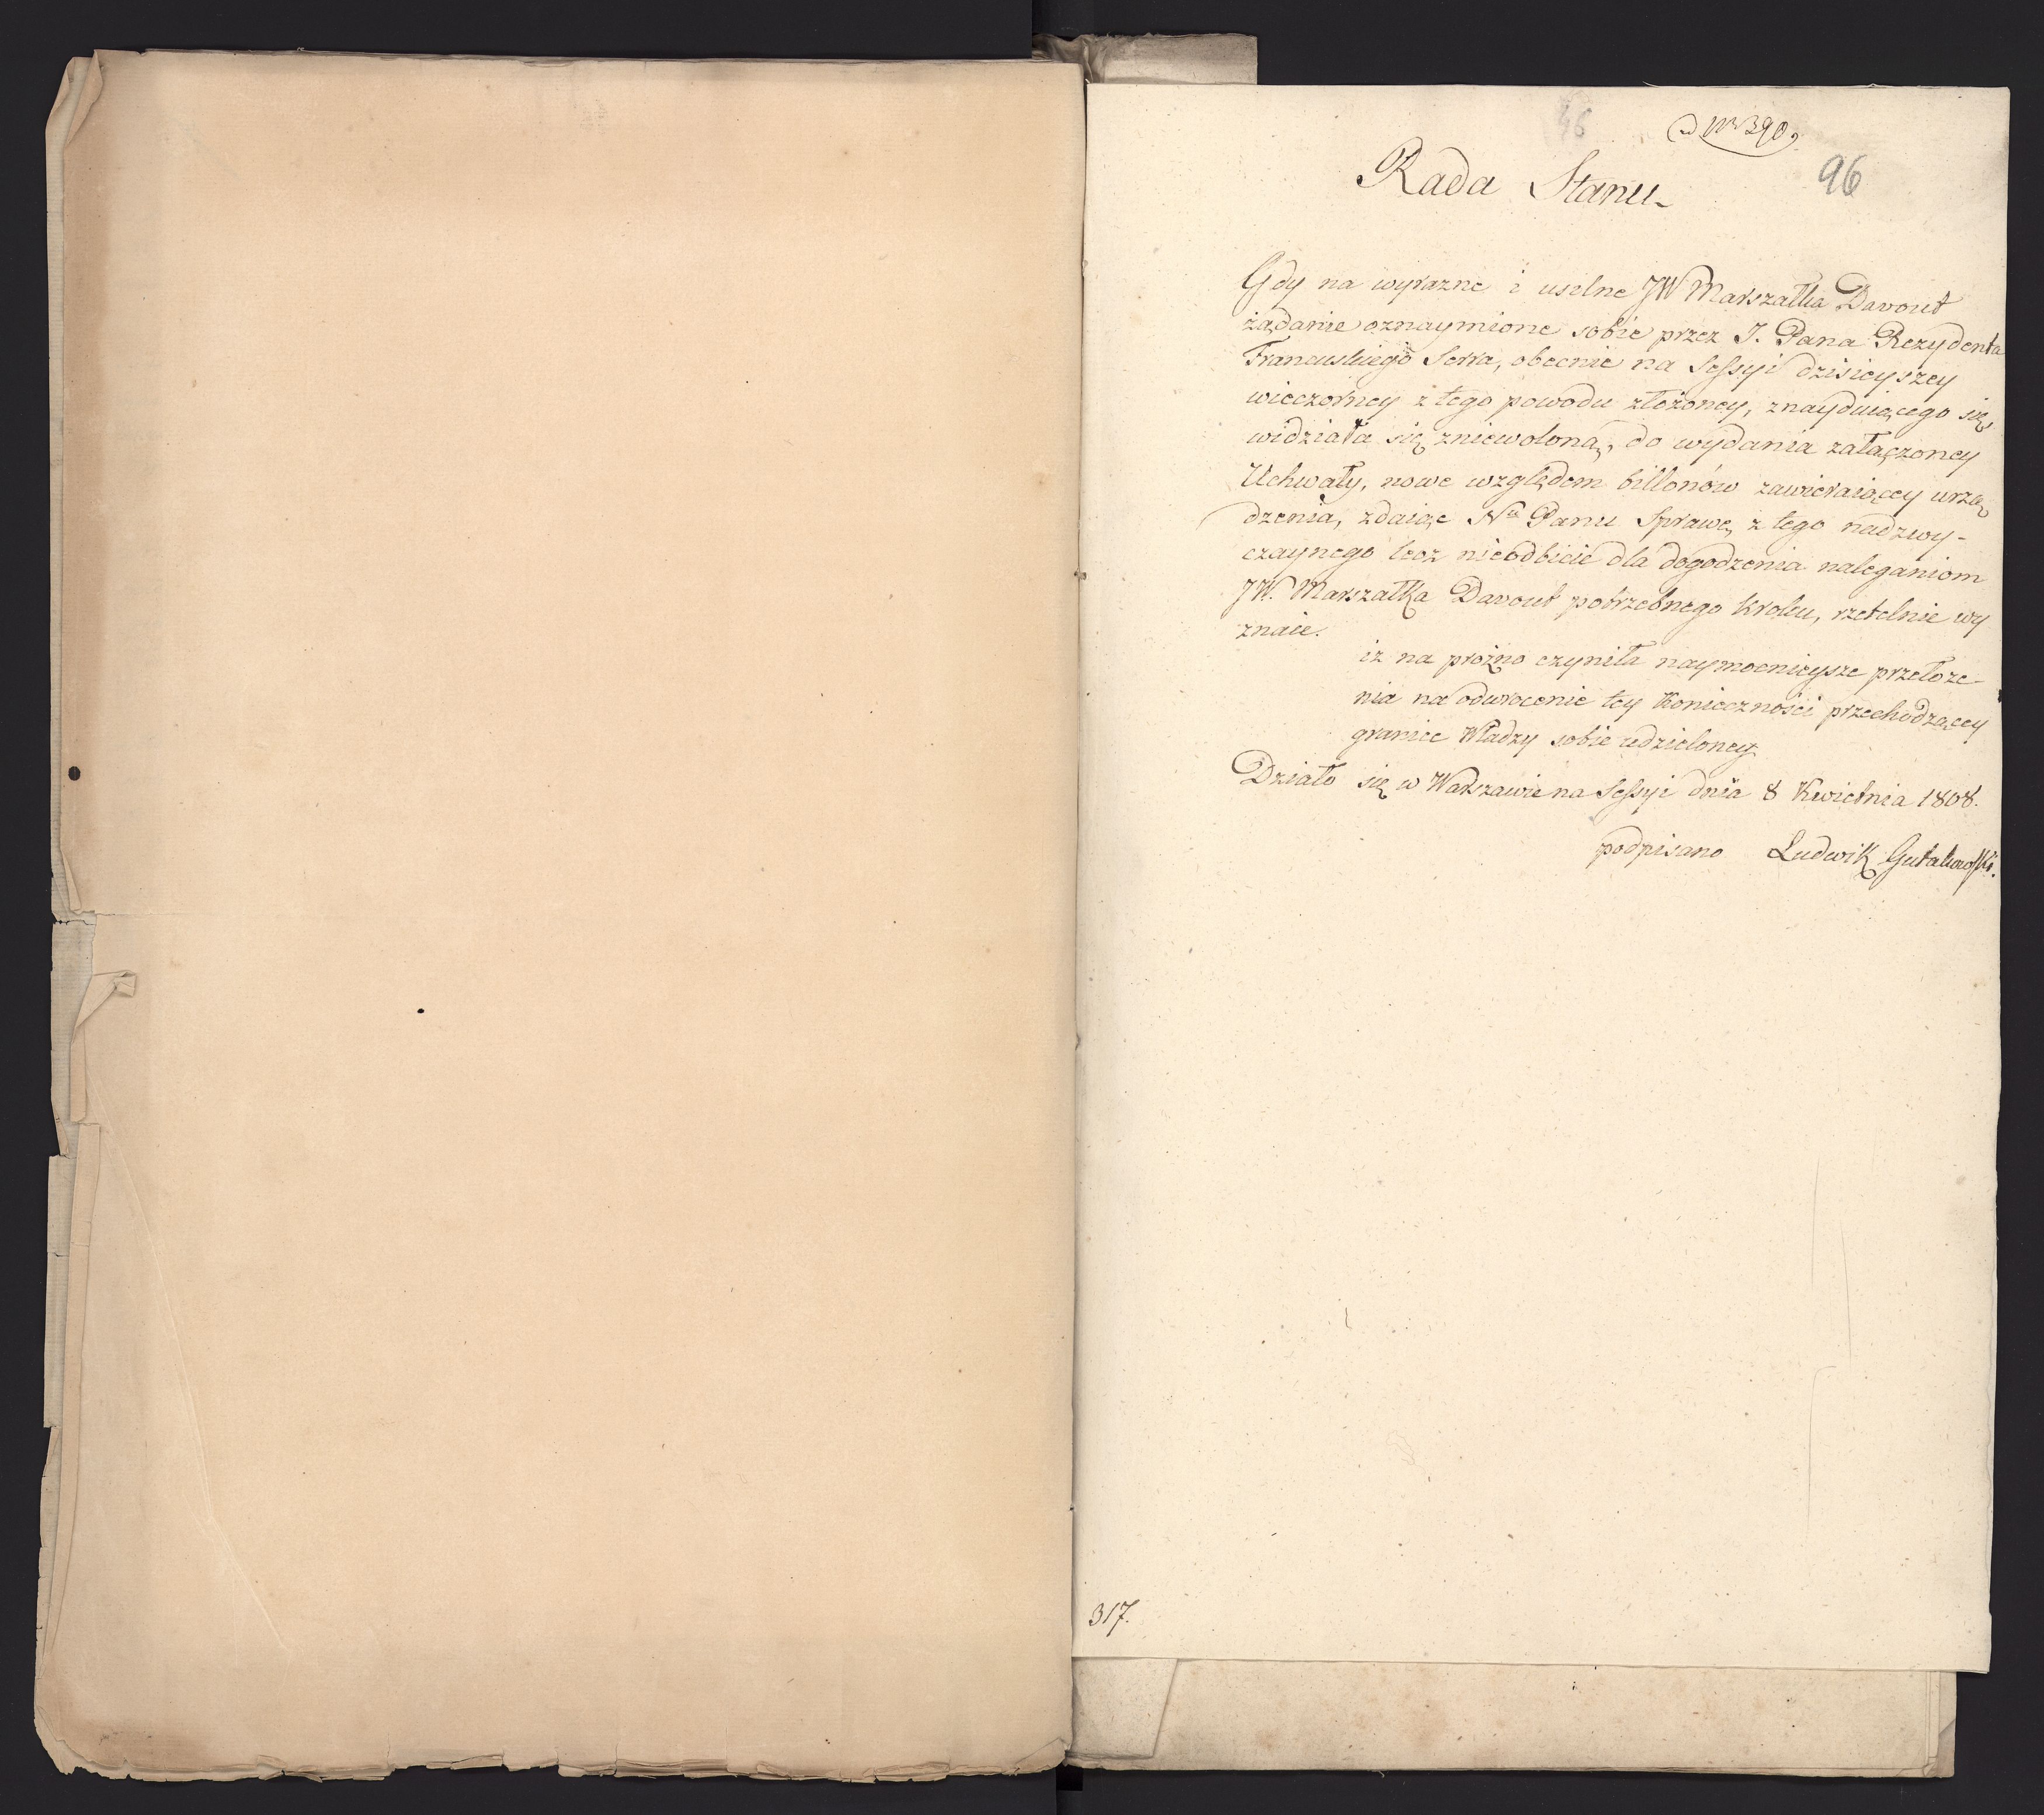 46
ad Nr 390.
96
Rada Stanu
Gdy na wyrazne i usilne JW Marszałka Davout
żądanie oznaymione sobie przez J. Pana Rezydenta
Francuskiego Serra, obecnie na Sessyi dzisieyszey
wieczorney z tego powodu złożoney, znayduiącego się,
widziała się zniewoloną, do wydania załączoney
Uchwały, nowe względem billonów zawieraiącey urzą
dzenia, zdaiąc Nu Panu Sprawę, z tego nadzwy-
czaynego lecz nieodbicie dla dogodzenia naleganiom
JW. Marszałka Davout potrzebnego kroku, rzetelnie wy
znaie.
iz na prożno czyniła naymocnieysze przełoże-
nia na odwrocenie tey Konieczności przechodzącey
granice Władzy sobie udzieloney
Działo się w Warszawie na Sessyi dnia 8 Kwietnia 1808.
podpisano Ludwik Gutakowski.
317.